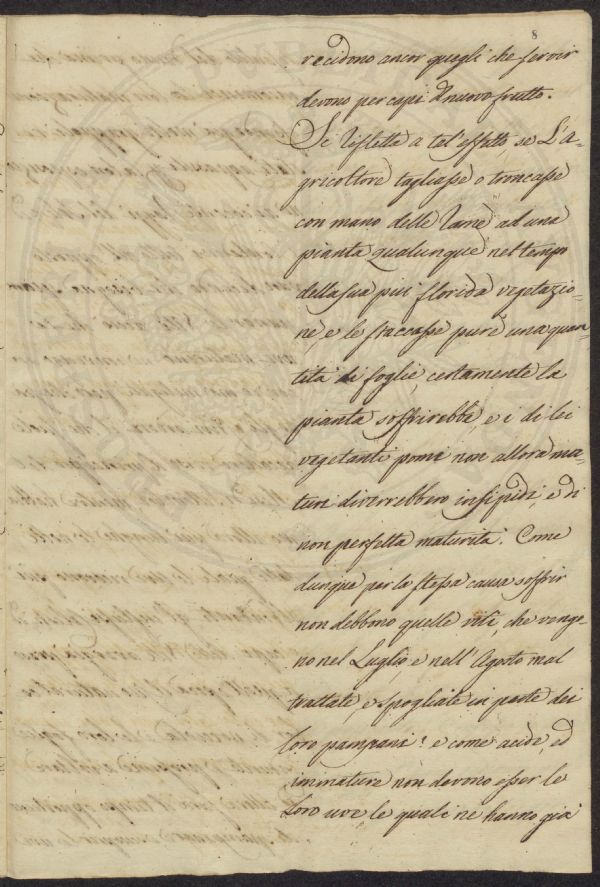 8
recidono ancor quegli che servir
devono per capi di nuovo frutto.
Si rifletta a tal'effetto, se L'a-
gricoltore tagliasse o troncasse
con mano delle rame ad una
pianta qualunque nel tempo
della sua piu' florida vegetazio-
ne, e le staccasse pure una quan-
tità di foglie, certamente la
pianta soffrirebbe, e i di lei
vegetanti pomi non allora ma-
turi diverrebbero insipidi, e di
non perfetta maturità. Come
dunque per la stessa causa soffrir
non debbono quelle viti, che venge-
no nel Luglio, e nell'Agosto mal
trattate, e spogliate in parte dei
loro pampani! e come acide, ed
immature non devono esser le
Loro uve le quali ne hanno già